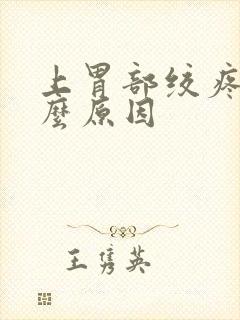 上胃部绞疼
麼原因
王隽英